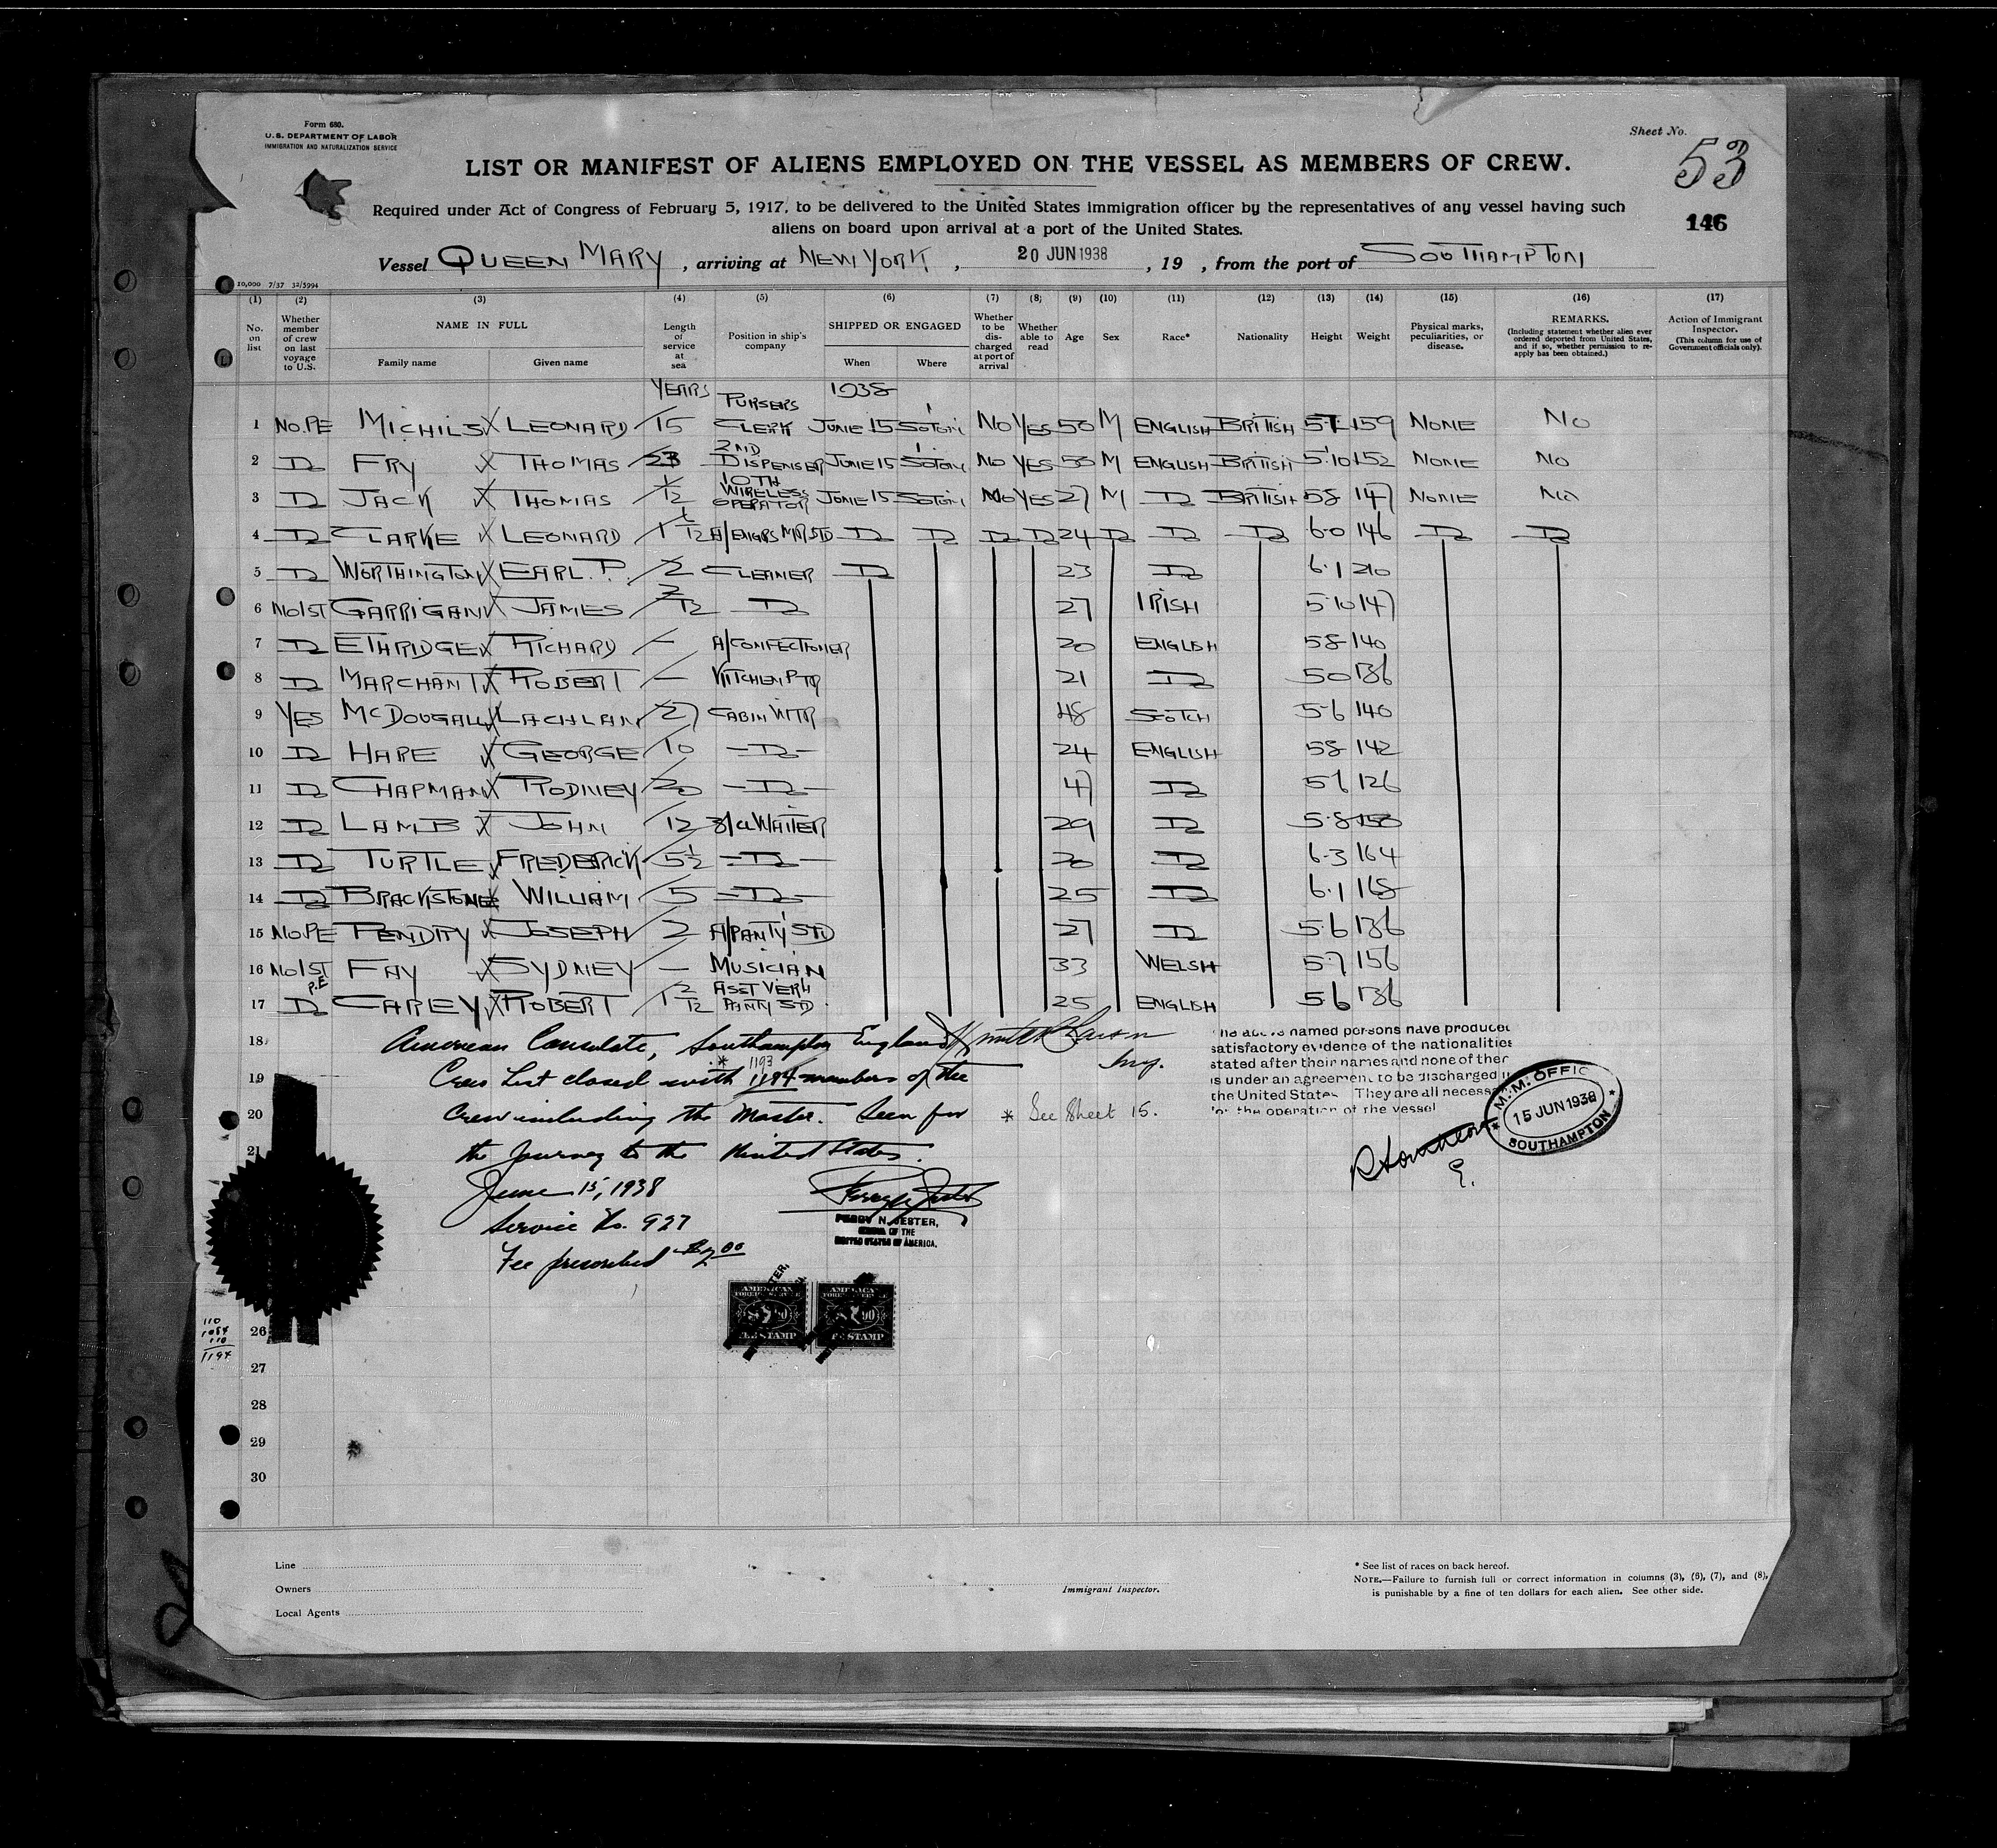 Form 680.
U.S. DEPARTMENT OF LABOR
IMMIGRATION AND NATURALIZATION SERVICE
Sheet No.
53
LIST OR MANIFEST OF ALIENS EMPLOYED ON THE VESSEL AS MEMBERS OF CREW.
Required under Act of Congress of February 5, 1917, to be delivered to the United States immigration officer by the representatives of any vessel having such
aliens on board upon arrival at a port of the United States.
146
Vessel QUEEN MARY, arriving at NEW YORK, 20 JUN 1938, 19 , from the port of SOUTHAMPTON
10,000 7/37 32/5994
(1) (2) (3) (4) (5) (6) (7) (8) (9) (10) (11) (12) (13) (14) (15) (16) (17)
No. on list
Whether member of crew on last voyage to U.S.
NAME IN FULL
Family name Given name
Length of service at sea
Position in ship's company
SHIPPED OR ENGAGED
When Where
Whether to be discharged at port of arrival
Whether able to read
Age
Sex
Race*
Nationality
Height
Weight
Physical marks, peculiarities, or disease.
REMARKS.
(Including statement whether alien ever ordered deported from United States, and if so, whether permission to reapply has been obtained.)
Action of Immigrant Inspector.
(This column for use of Government officials only).
YEARS 1938
1 NO.PE MICHILS X LEONARD 15 PURSERS CLERK JUNE 15 SOTON NO YES 50 M ENGLISH BRITISH 159 NONE NO
2 D FRY X THOMAS 23 2ND DISPENSER JUNE 15 SOTON NO YES 53 M ENGLISH BRITISH 5'10 152 NONE NO
3 D JACK X THOMAS 1/12 10TH WIRELESS OPERATOR JUNE 15 SOTON NO YES 27 M D BRITISH 58 147 NONE NO
4 D CLARKE X LEONARD A/ENGRS MR STD D D D D 24 D D D 6·0 146 D D
5 D WORTHINGTON X EARL. P. 2 CLEANER D 23 D 6·1 210
6 NO1ST GARRIGAN X JAMES 2/12 D 27 IRISH 5·10 147
7 D ETHRIDGE X RICHARD — A/CONFECTIONER 20 ENGLISH 58 140
8 D MARCHANT X ROBERT — KITCHEN PTR 21 D 50 136
9 YES McDOUGALL X LACHLAN 27 CABIN WTR 48 SCOTCH 5·6 140
10 D HARE X GEORGE 10 —D— 24 ENGLISH 58 142
11 D CHAPMAN X RODNEY 20 —D— 47 D 5·6 126
12 D LAMB X JOHN 12 3/CL WAITER 29 D 5·8 150
13 D TURTLE X FREDERICK 5½ —D— 20 D 6·3 164
14 D BRACKSTONE X WILLIAM 5 —D— 25 D 6·1 168
15 NO.PE PENDRY X JOSEPH 2 A/PANTY STD 27 D 5·6 136
16 NO1ST FAY X SYDNEY — MUSICIAN 33 WELSH 5·7 156
P.E
17 D CAREY X ROBERT 1 2/12 ASST VERH PANTY STD 25 ENGLISH 5·6 136
18 American Consulate, Southampton England
19 Crew list closed with * 1193 1194 members of the
20 Crew including the Master. Seen for * See Sheet 15.
21 the journey to the United States.
June 15, 1938
Service No. 927
Fee prescribed
The above named persons have produced
satisfactory evidence of the nationalities
stated after their names and none of them
is under an agreement to be discharged in
the United States They are all necessary
for the operation of the vessel
M.M. OFFICE
15 JUN 1938
SOUTHAMPTON
PERRY N. JESTER,
OF THE
UNITED STATES OF AMERICA.
AMERICAN
FOREIGN SERVICE
FEE STAMP
AMERICAN
FOREIGN SERVICE
FEE STAMP
110
1084
110
1194
26
27
28
29
30
Line
Owners
Local Agents
Immigrant Inspector.
* See list of races on back hereof.
NOTE.—Failure to furnish full or correct information in columns (3), (6), (7), and (8),
is punishable by a fine of ten dollars for each alien. See other side.